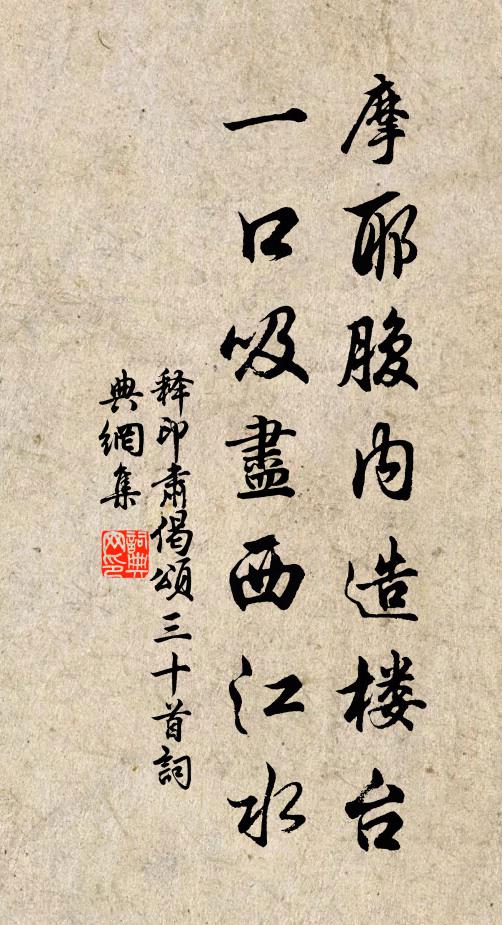 摩耶腹内造楼台
一口吸盡西江水
释印肃偈頌三十首詞
典網集
詞典网印